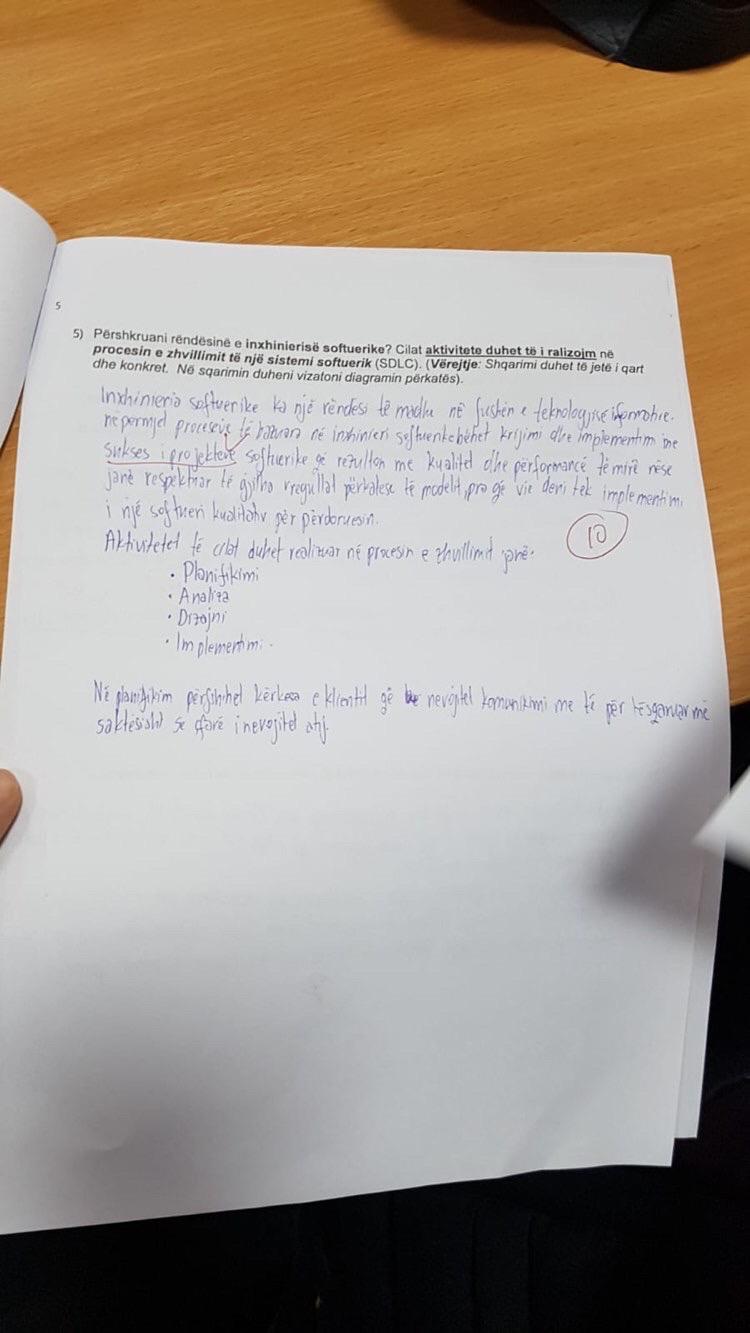 5
5) Përshkruani rëndësinë e inxhinierisë softuerike? Cilat aktivitete duhet të i ralizojm në
procesin e zhvillimit të një sistemi softuerik (SDLC). (Vërejtje: Shqarimi duhet të jetë i qart
dhe konkret. Në sqarimin duheni vizatoni diagramin përkatës).
Inxhinieria softuerike ka një rëndësi të madhe në fushën e teknologjisë informative.
nëpërmjet proceseve të bazuara në inxhinieri softuerike bëhet krijimi dhe implementim me
sukses i projekteve softuerike që rezulton me kualitet dhe përformancë të mirë nëse
janë respektuar të gjitha rregullat përkatëse të modelit, pra që vie deri tek implementimi
i një softueri kualitativ për përdoruesin.
10
Aktivitetet të cilat duhet realizuar në procesin e zhvillimit janë:
• Planifikimi
• Analiza
• Dizajni
• Implementimi.
Në planifikim përfshihet kërkesa e klientit që nevojitet komunikimi me të për të sqaruar më
saktësisht se çfarë i nevojitet atij.